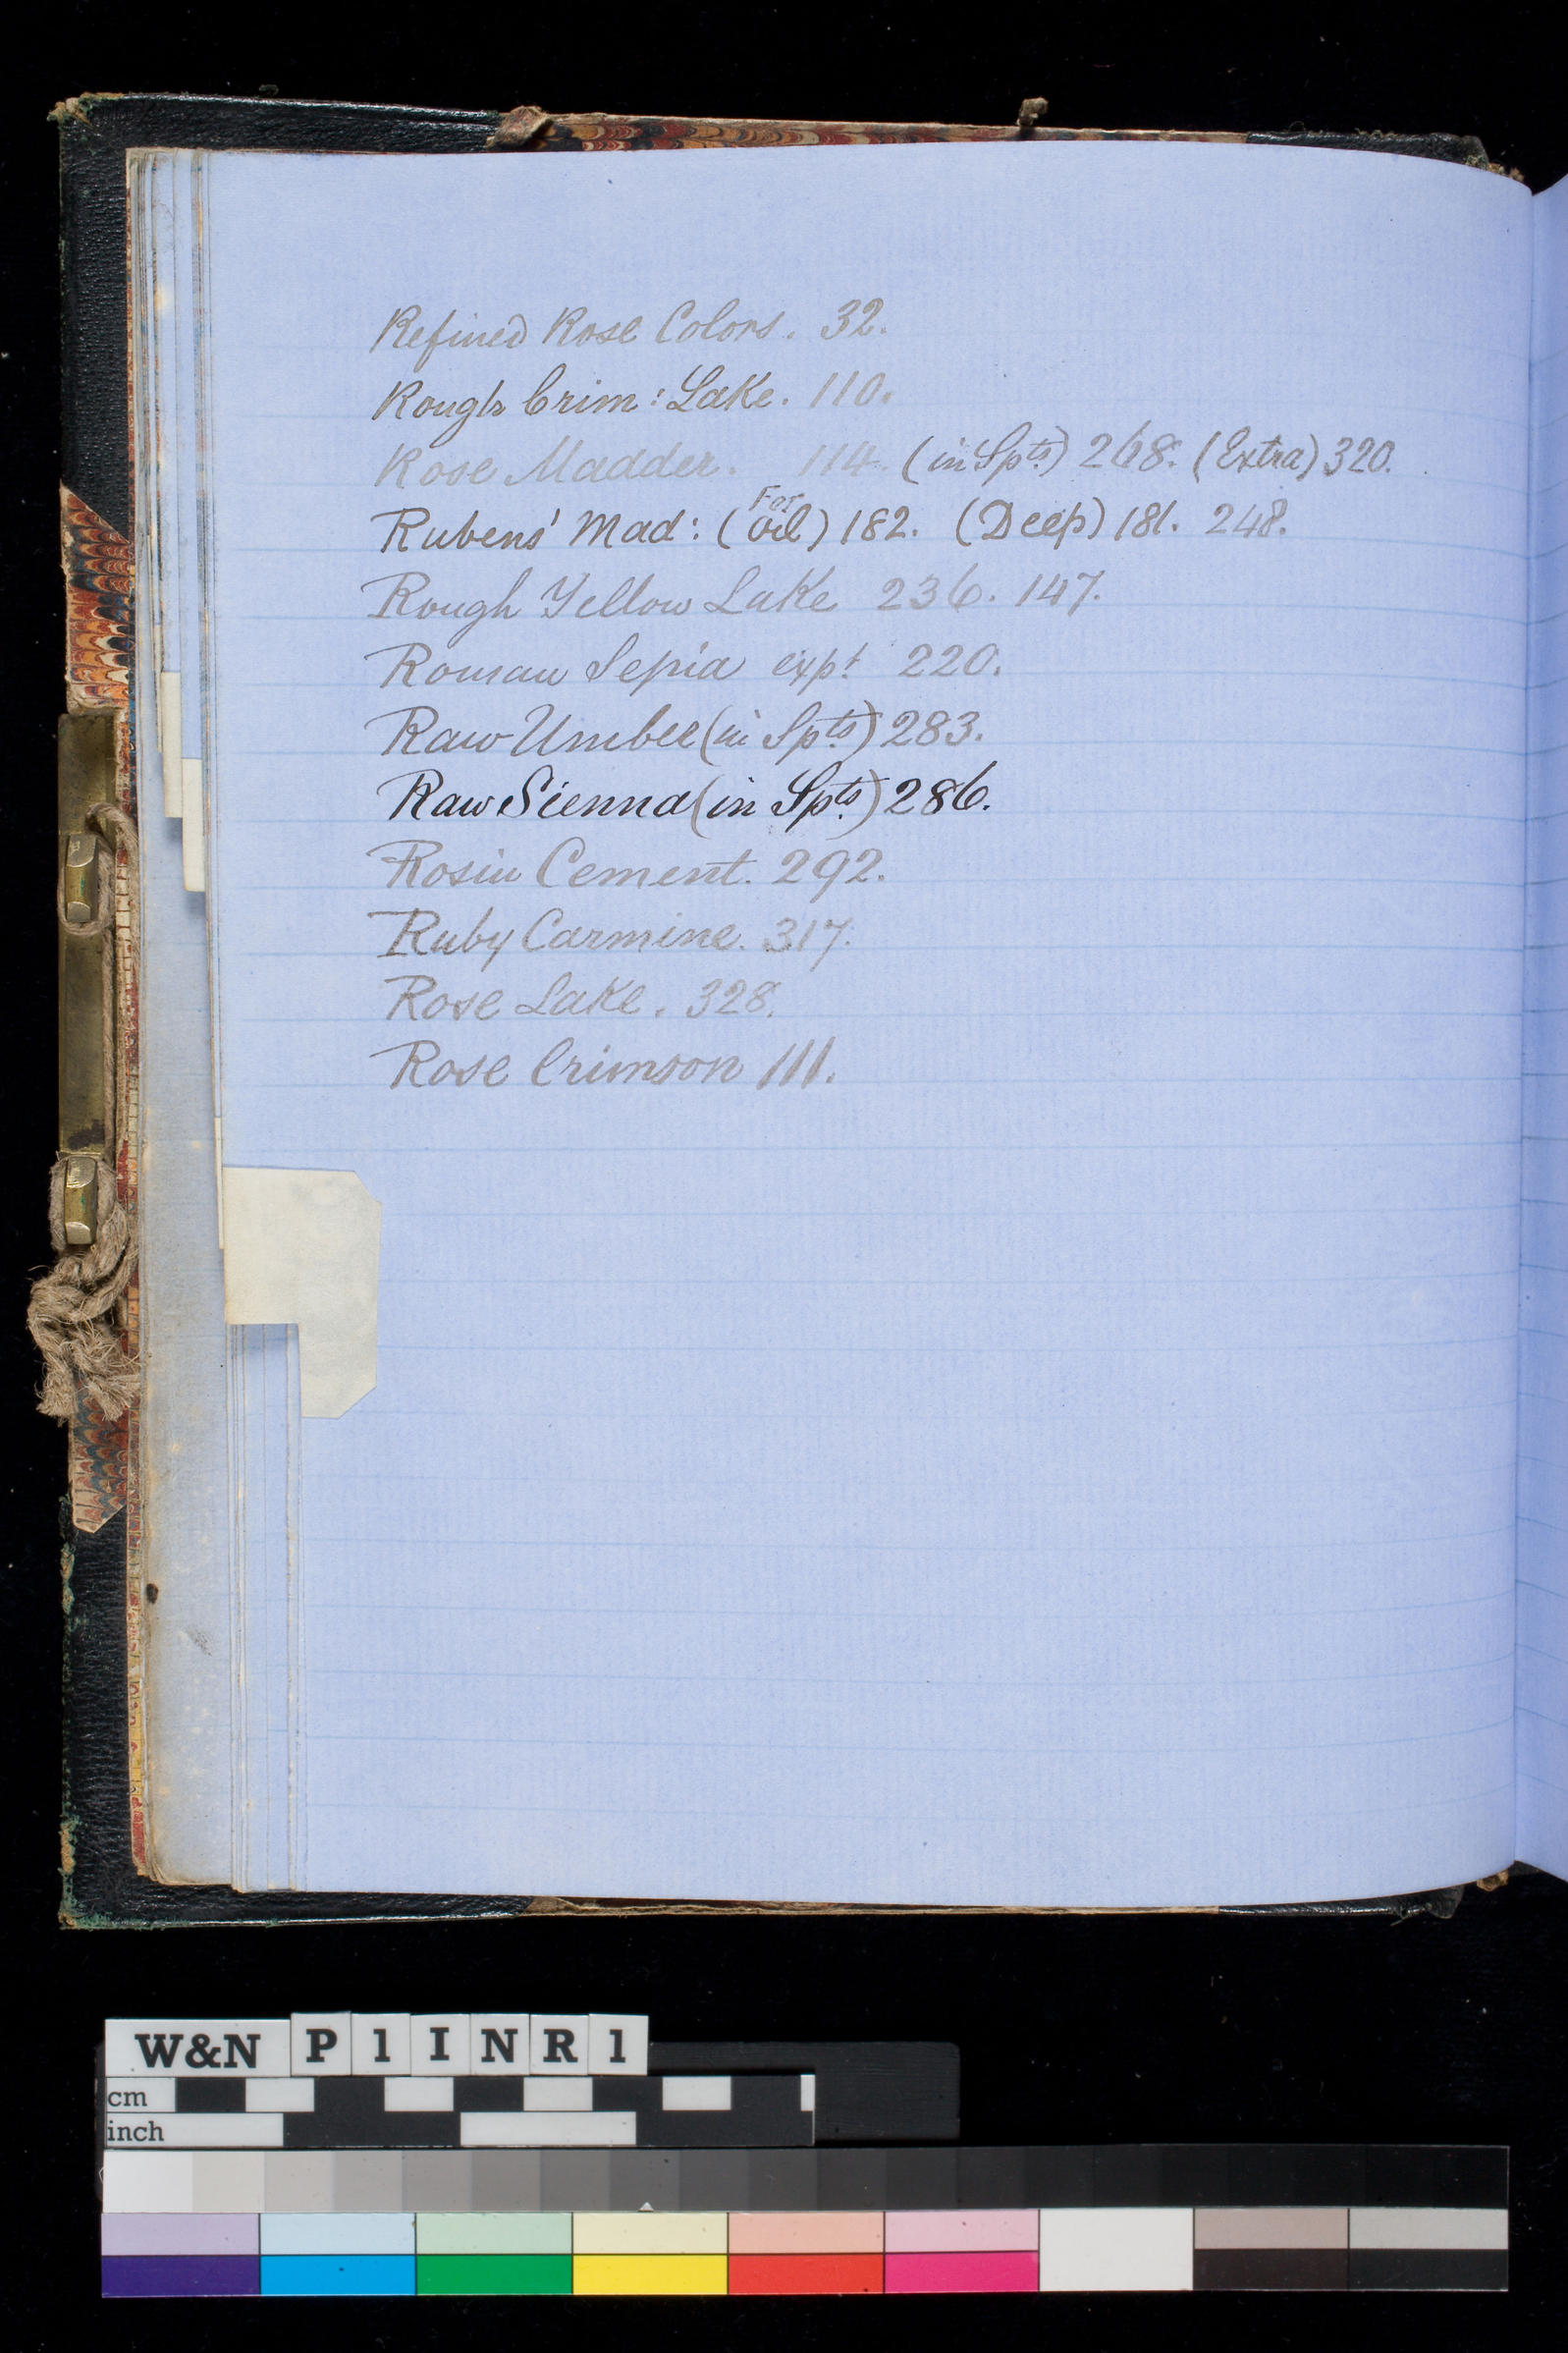 Refined Rose Colors. 32.
Rough Crim: Lake. 110.
Rose Madder. 114. (in Spts) 268. (Extra) 320.
Rubens' Mad: (For oil) 182. (Deep) 181. 248.
Rough Yellow Lake 236. 147.
Roman Sepia expt 220.
Raw Umber (in Spts) 283.
Raw Sienna (in Spts) 286.
Rosin Cement. 292.
Ruby Carmine. 317.
Rose Lake. 328.
Rose Crimson 111.
W&N P 1 I N R 1
cm
inch